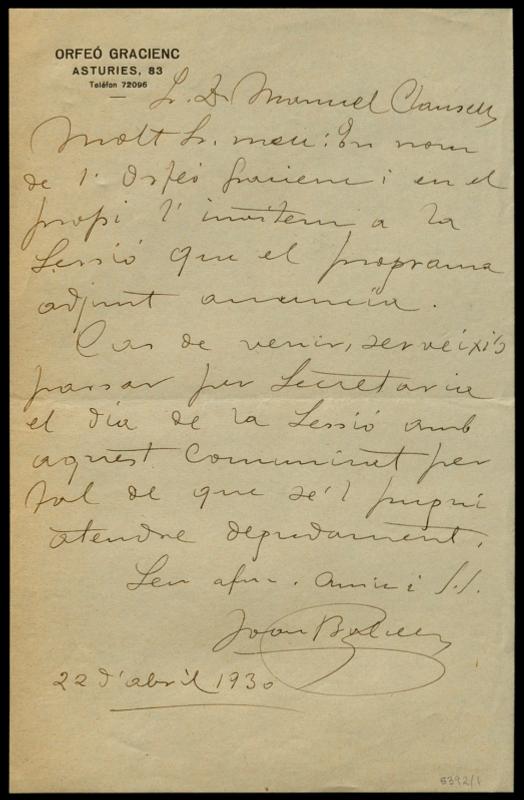 ORFEÓ GRACIENC
ASTURIES, 83
Telèfon 72096
Sr. Dn Manuel Clausells
Molt Sr. meu: En nom
de l'Orfeó Gracienc i en el
propi l'invitem a la
Sessió que el programa
adjunt anuncia.
Cas de venir, serveixi's
passar per Secretaria
el dia de la Sessió amb
aquest Comunicat per
tal de que se'l pugui
atendre degudament.
Seu afm. amic i S.S.
Joan Balcells
22 d'abril 1930
5392/1